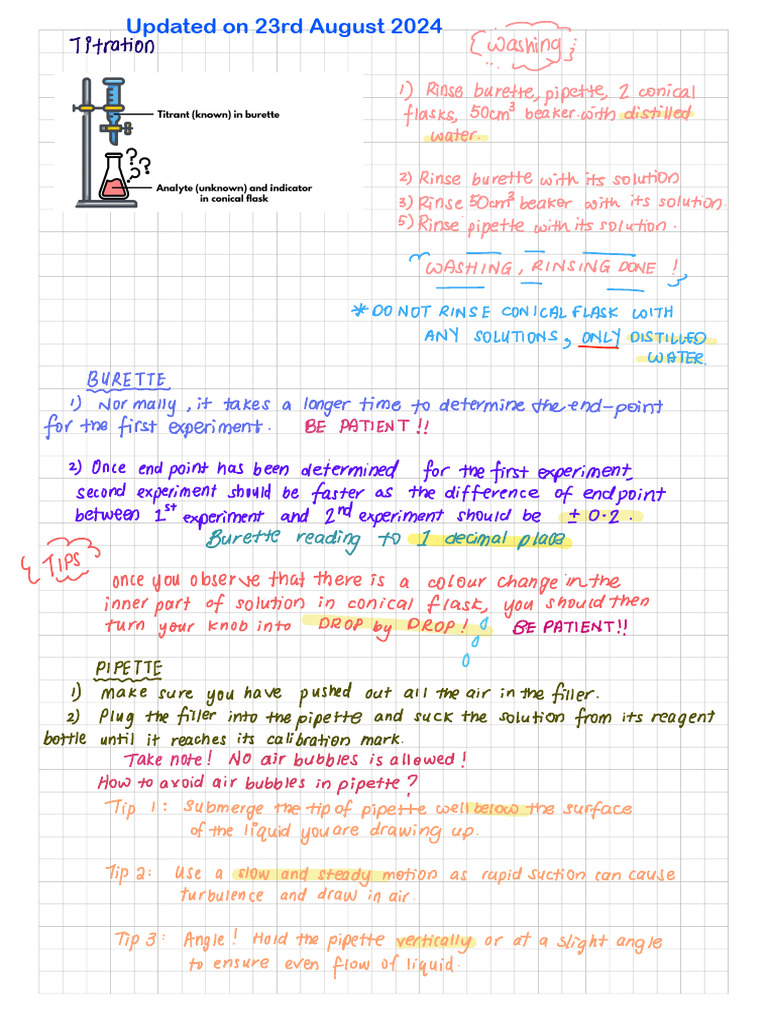 Updated on 23rd August 2024
Titration
Titrant (known) in burette
? ? ?
Analyte (unknown) and indicator
in conical flask
Washing
1) Rinse burette, pipette, 2 conical
flasks, 50cm³ beaker with distilled
water.
2) Rinse burette with its solution
3) Rinse 50cm³ beaker with its solution.
5) Rinse pipette with its solution.
WASHING, RINSING DONE !
* DO NOT RINSE CONICAL FLASK WITH
ANY SOLUTIONS, ONLY DISTILLED
WATER.
BURETTE
1) Normally, it takes a longer time to determine the end-point
for the first experiment. BE PATIENT!!
2) Once end point has been determined for the first experiment,
second experiment should be faster as the difference of end point
between 1st experiment and 2nd experiment should be ± 0.2.
Burette reading to 1 decimal place
TIPS
once you observe that there is a colour change in the
inner part of solution in conical flask, you should then
turn your knob into DROP by DROP! BE PATIENT!!
PIPETTE
1) make sure you have pushed out all the air in the filler.
2) Plug the filler into the pipette and suck the solution from its reagent
bottle until it reaches its calibration mark.
Take note! No air bubbles is allowed!
How to avoid air bubbles in pipette?
Tip 1: Submerge the tip of pipette well below the surface
of the liquid you are drawing up.
Tip 2: Use a slow and steady motion as rapid suction can cause
turbulence and draw in air.
Tip 3: Angle! Hold the pipette vertically or at a slight angle
to ensure even flow of liquid.